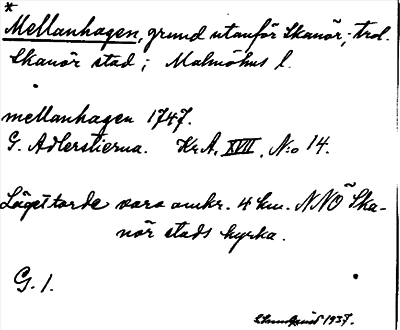 *
Mellanhagen, grund utanför Skanör; trol.
Skanör stad; Malmöhus l.
mellanhagen 1747.
G. Adlerstierna. Kr. A. XVII, N:o 14.
Läget torde vara omkr. 4 km. NNO Ska-
nör stads kyrka.
G. 1.
1937.